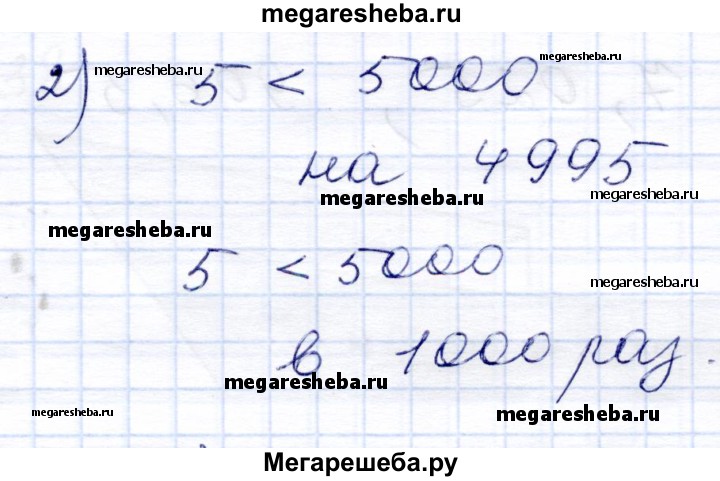 megaresheba.ru
2) megaresheba.ru 5 < 5000 megaresheba.ru
на 4995
megaresheba.ru megaresheba.ru
megaresheba.ru
5 < 5000 megaresheba.ru
в 1000 раз.
megaresheba.ru
megaresheba.ru megaresheba.ru
Мегарешеба.ру